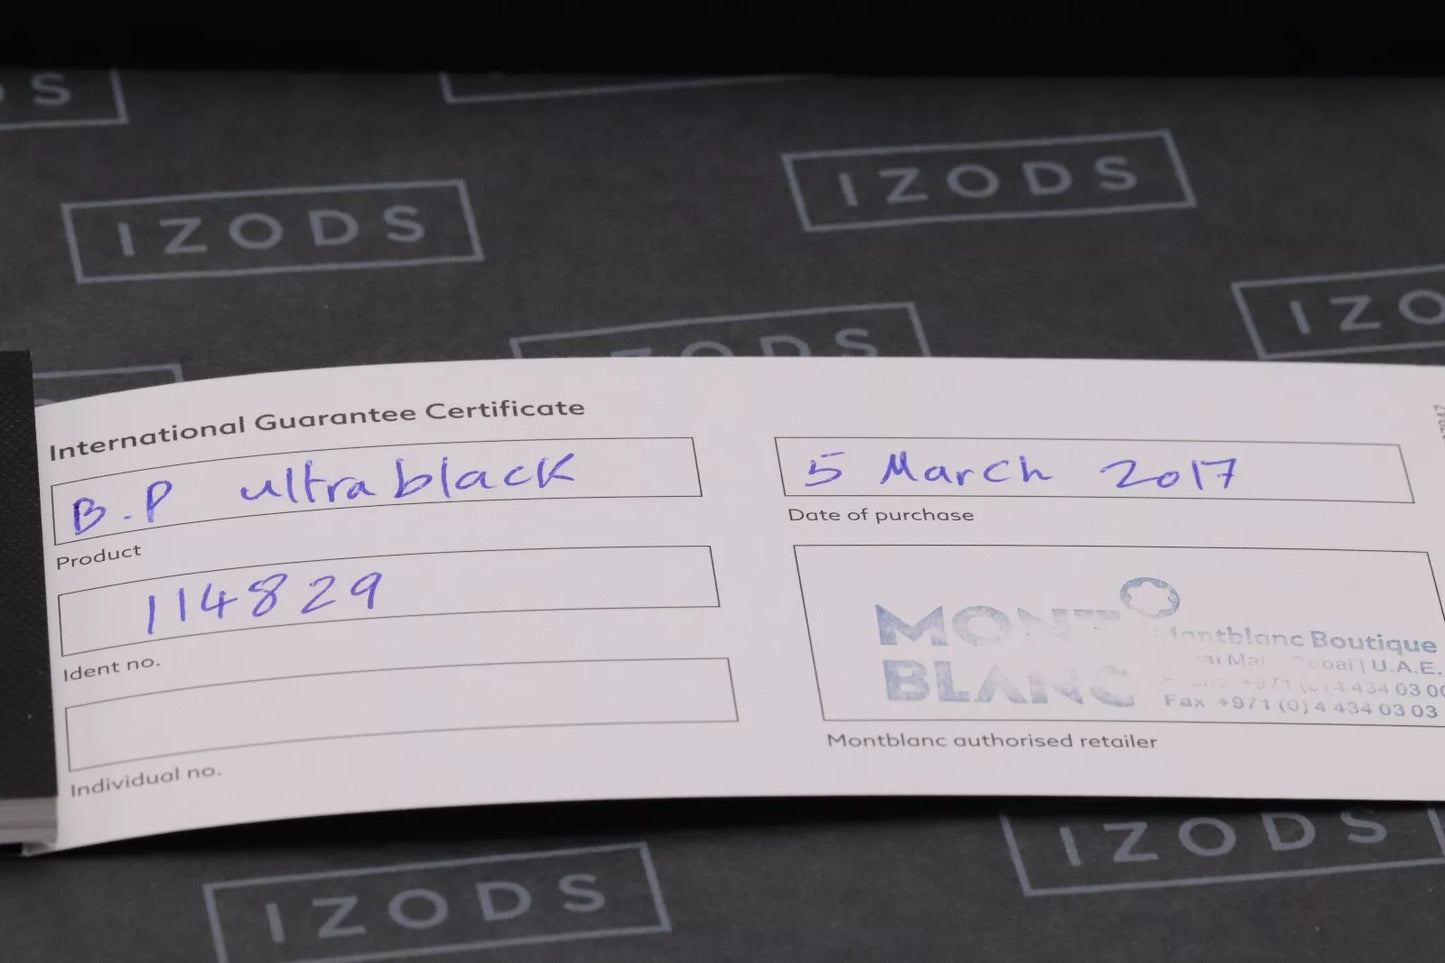 S
IZODS
IZODS
IZO
ODS
International Guarantee Certificate
B.P ultra black
Product
114829
Ident no.
Individual no.
5 March 2017
Date of purchase
MONT
BLANC
Montblanc Boutique
U.A.E.
+971 (0) 4 434 03 00
Fax +971 (0) 4 434 03 03
Montblanc authorised retailer
IZODS
IZODS